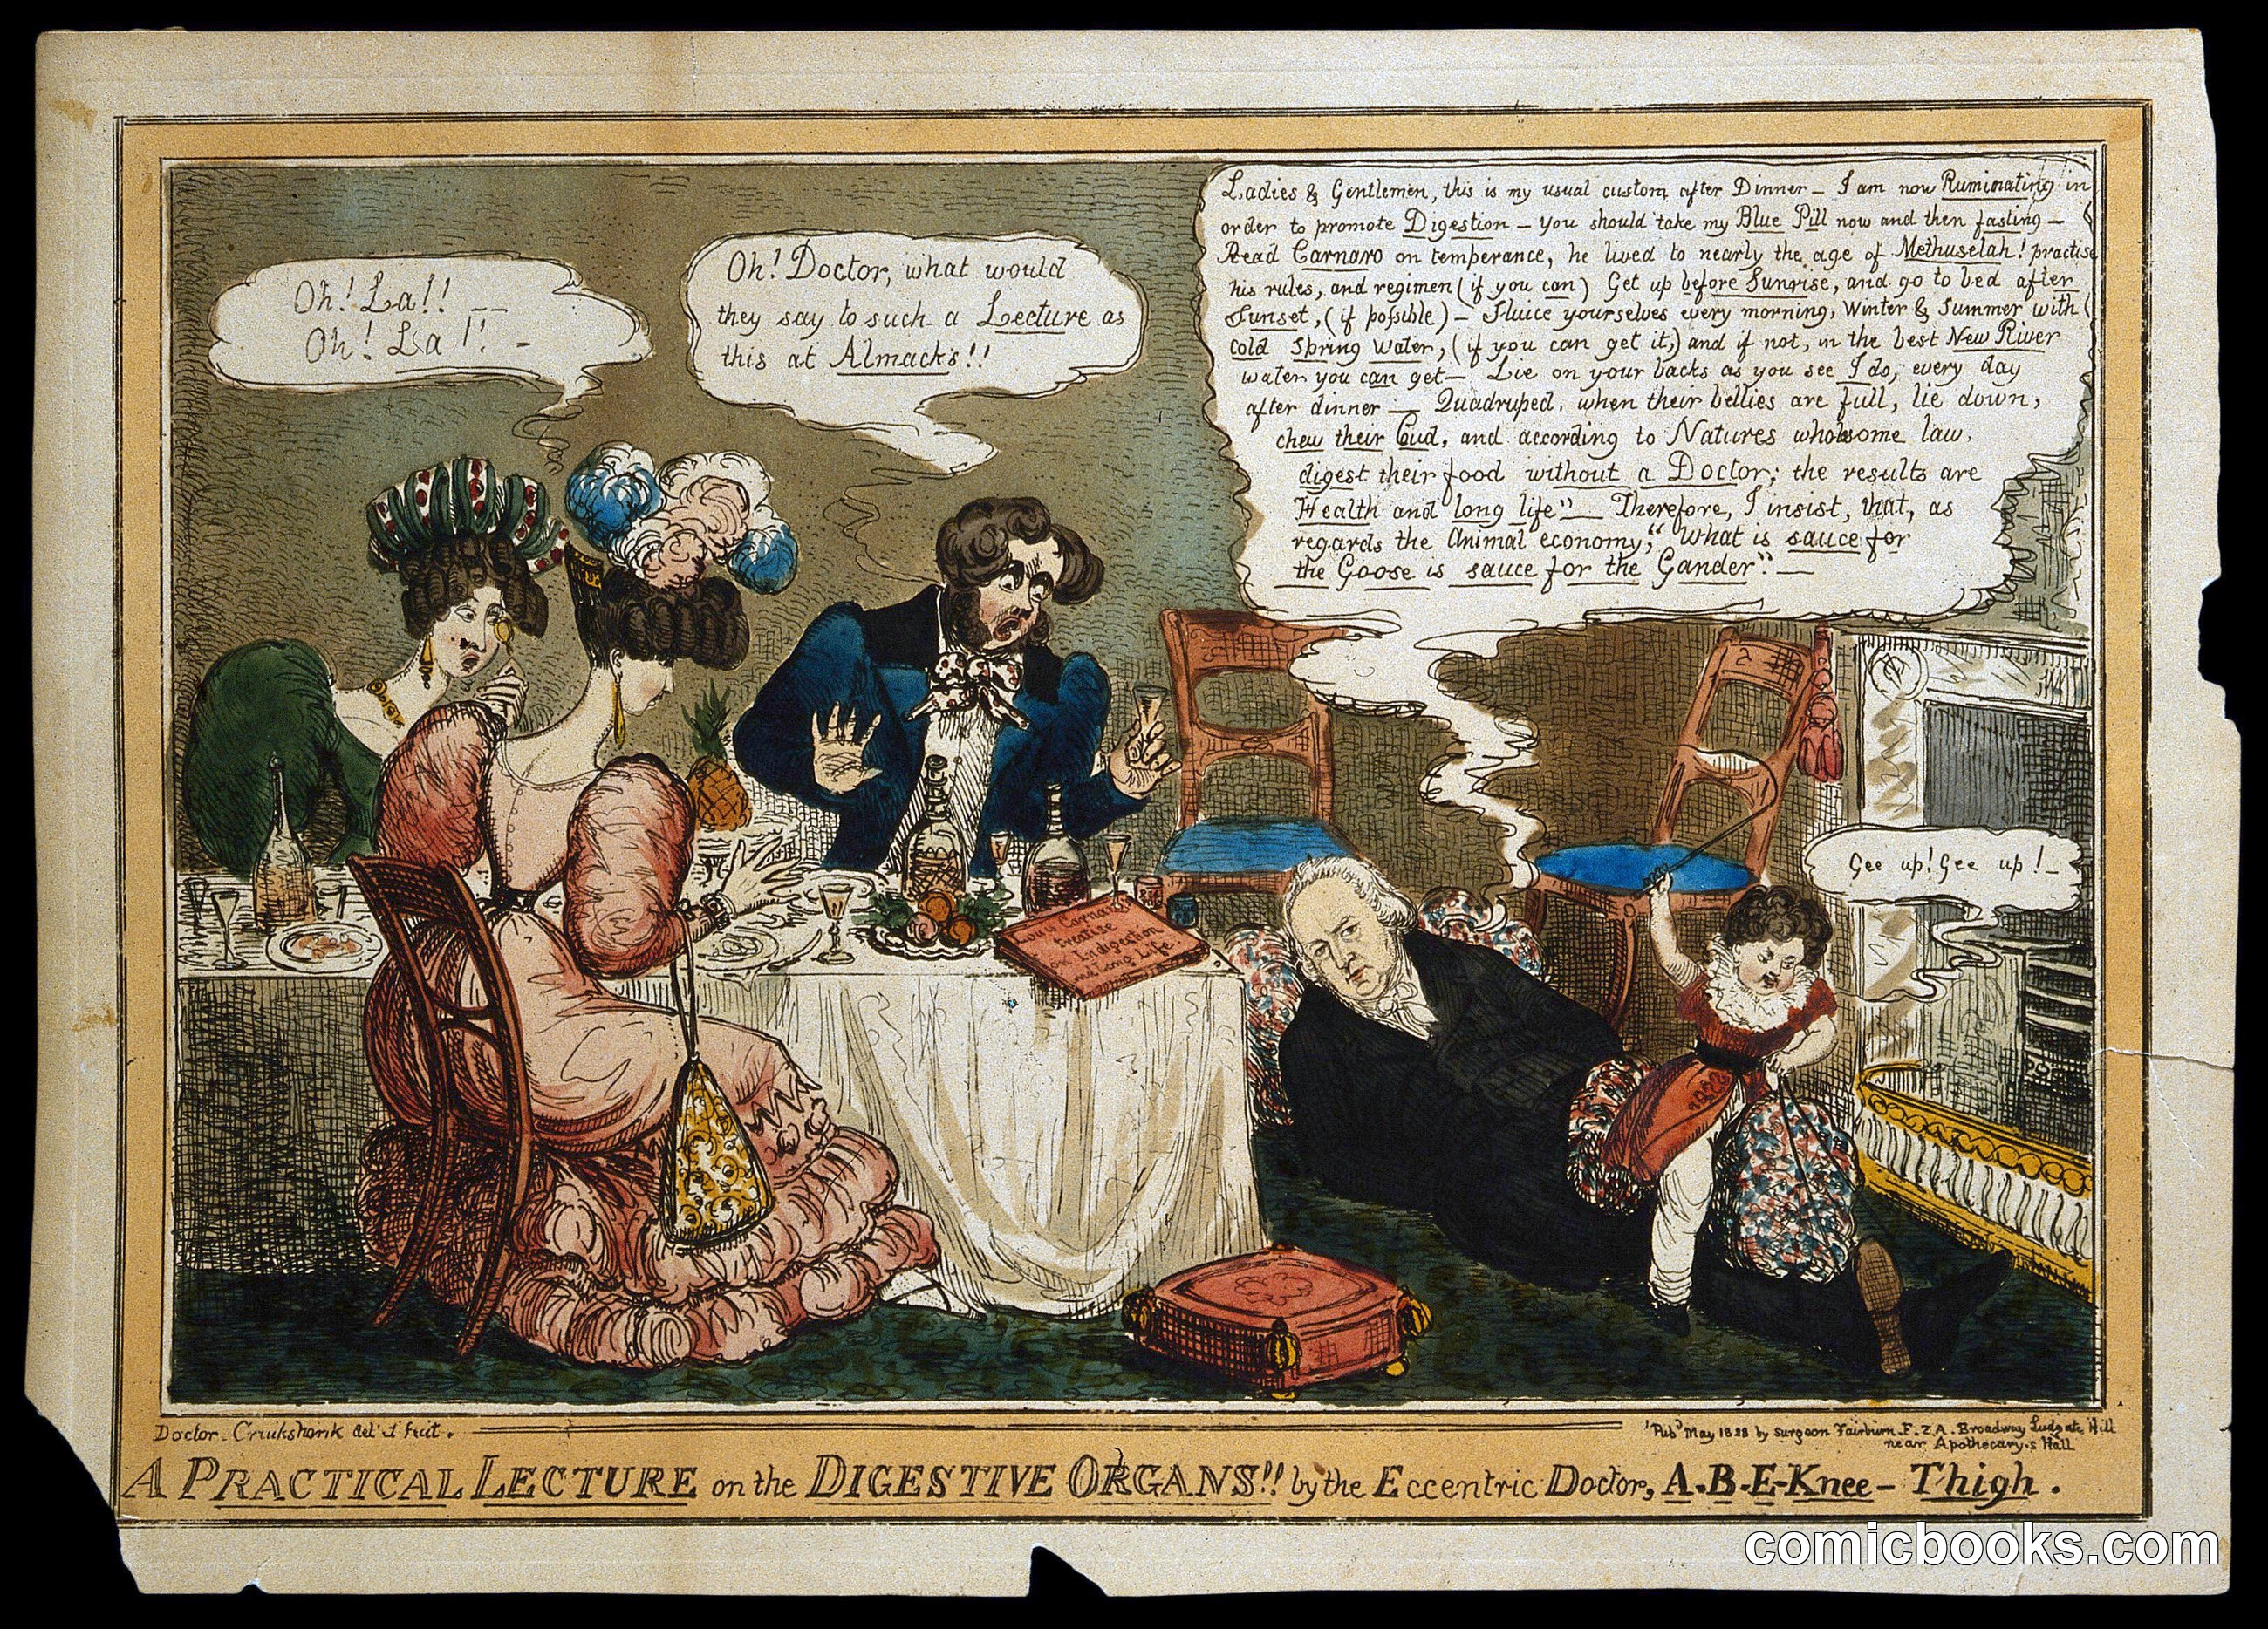 Oh! La!! --
Oh! La!! -
Oh! Doctor, what would
they say to such a Lecture as
this at Almack's!!
Ladies & Gentlemen, this is my usual custom after Dinner — I am now Ruminating in
order to promote Digestion — you should take my Blue Pill now and then fasting —
Read Carnaro on temperance, he lived to nearly the age of Methuselah! practise
his rules, and regimen (if you can) Get up before Sunrise, and go to bed after
Sunset, (if possible) — Sluice yourselves every morning, Winter & Summer with
cold Spring Water, (if you can get it,) and if not, in the best New River
water you can get — Lie on your backs as you see I do, every day
after dinner — Quadruped, when their bellies are full, lie down,
chew their Cud, and according to Natures wholesome law,
digest their food without a Doctor; the results are
Health and long life" — Therefore, I insist, that, as
regards the Animal economy, "What is sauce for
the Goose is sauce for the Gander." —
Gee up! Gee up! —
Carnaro
treatise
on Indigestion
and Long Life
Doctor Cruikshank del' & fecit.
Pubd May 1828 by Surgeon Fairburn. F.Z.A. Broadway Ludgate Hill
near Apothecary's Hall
A PRACTICAL LECTURE on the DIGESTIVE ORGANS!! by the Eccentric Doctor, A.B.E-Knee-Thigh.
comicbooks.com